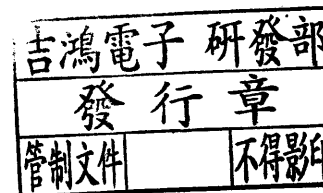 吉鴻電子 研發部
發行章
管制文件 不得影印